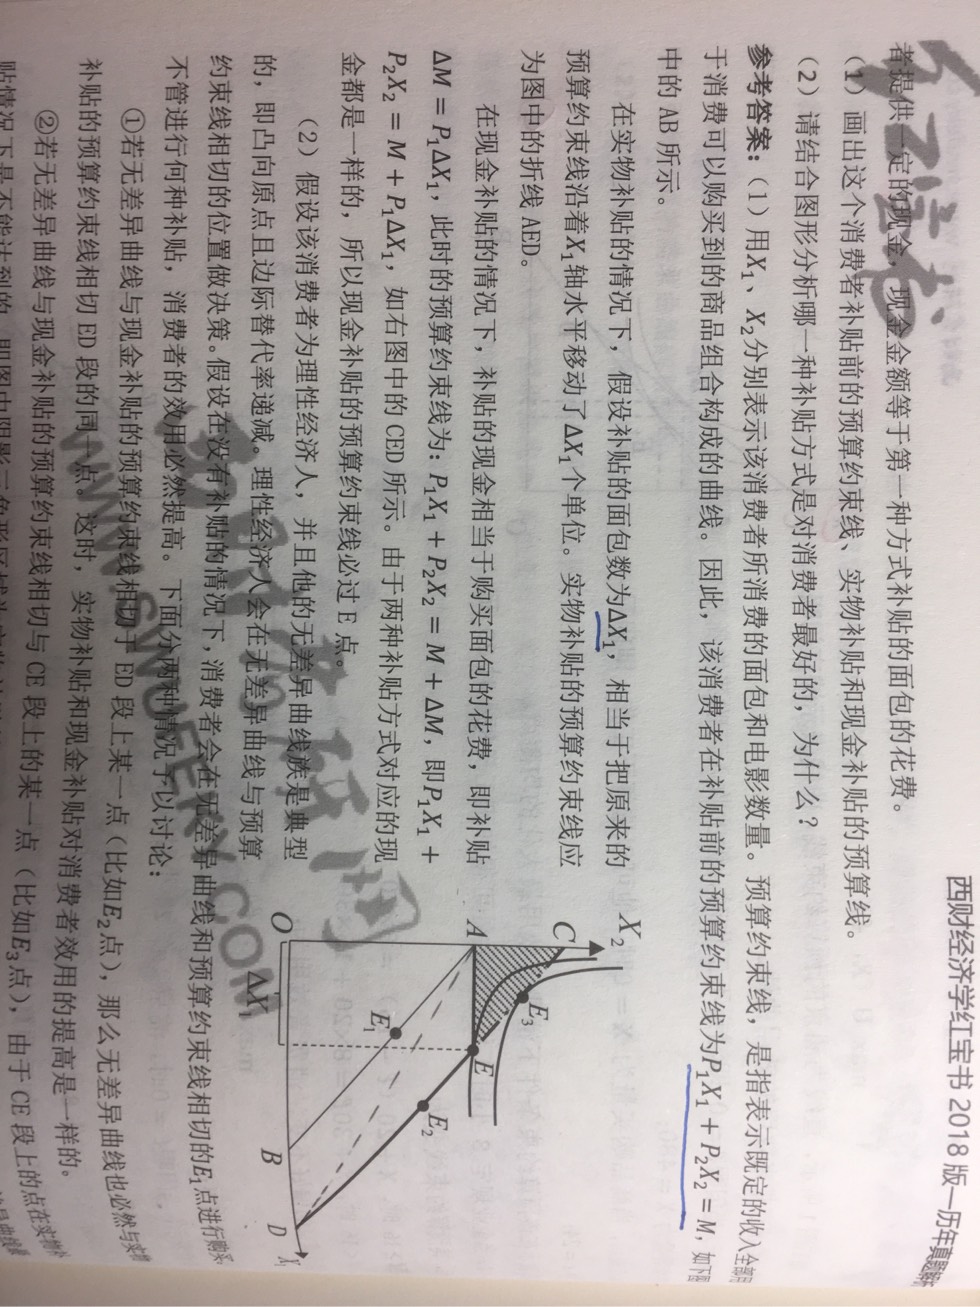 西财经济学红宝书 2018 版—历年真题解
者提供一定的现金，现金金额等于第一种方式补贴的面包的花费。
（1）画出这个消费者补贴前的预算约束线、实物补贴和现金补贴的预算线。
（2）请结合图形分析哪一种补贴方式是对消费者最好的，为什么？
参考答案：（1）用X₁、X₂分别表示该消费者所消费的面包和电影数量。预算约束线，是指表示既定的收入全部用
于消费可以购买到的商品组合构成的曲线。因此，该消费者在补贴前的预算约束线为P₁X₁ + P₂X₂ = M，如下图
中的 AB 所示。
在实物补贴的情况下，假设补贴的面包数为ΔX₁，相当于把原来的
预算约束线沿着X₁轴水平移动了ΔX₁个单位。实物补贴的预算约束线应
为图中的折线 AED。
在现金补贴的情况下，补贴的现金相当于购买面包的花费，即补贴
ΔM = P₁ΔX₁，此时的预算约束线为：P₁X₁ + P₂X₂ = M + ΔM，即P₁X₁ +
P₂X₂ = M + P₁ΔX₁，如右图中的 CED 所示。由于两种补贴方式对应的现
金都是一样的，所以现金补贴的预算约束线必过 E 点。
（2）假设该消费者为理性经济人，并且他的无差异曲线族是典型
的，即凸向原点且边际替代率递减。理性经济人会在无差异曲线与预算
约束线相切的位置做决策。假设在没有补贴的情况下，消费者会在无差异曲线和预算约束线相切的E₁点进行购买
不管进行何种补贴，消费者的效用必然提高。下面分两种情况予以讨论：
①若无差异曲线与现金补贴的预算约束线相切于 ED 段上某一点（比如E₂点），那么无差异曲线也必然与实物
补贴的预算约束线相切 ED 段的同一点。这时，实物补贴和现金补贴对消费者效用的提高是一样的。
②若无差异曲线与现金补贴的预算约束线相切与 CE 段上的某一点（比如E₃点），由于 CE 段上的点在实物补
贴情况下是不能达到的，即图中阴影三角形区域为
X₂
C
E₃
A
E
E₂
E₁
O
ΔX₁
B
D
X
WWW.SWUFEKY.COM